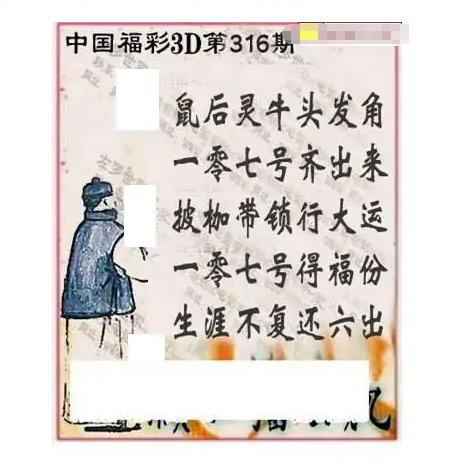 中国福彩3D第316期
鼠后灵牛头发角
一零七号齐出来
披枷带锁行大运
一零七号得福份
生涯不复还六出